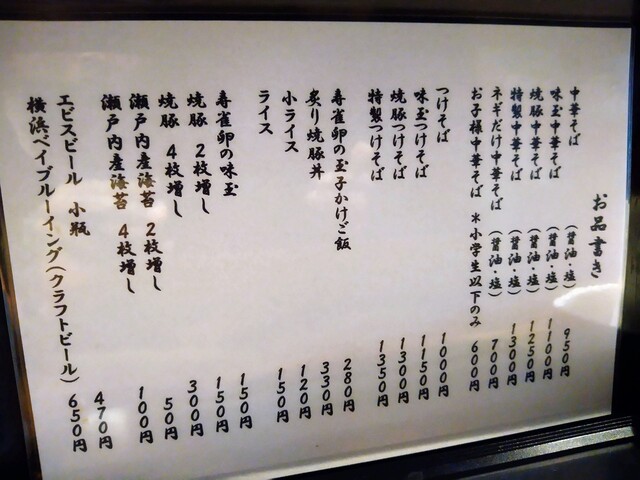 お品書き
中華そば (醤油・塩) 950円
味玉中華そば (醤油・塩) 1100円
焼豚中華そば (醤油・塩) 1250円
特製中華そば (醤油・塩) 1300円
ネギだけ中華そば (醤油・塩) 700円
お子様中華そば *小学生以下のみ 600円
つけそば 1000円
味玉つけそば 1150円
焼豚つけそば 1300円
特製つけそば 1350円
寿雀卵の玉子かけご飯 280円
炙り焼豚丼 330円
小ライス 120円
ライス 150円
寿雀卵の味玉 150円
焼豚 2枚増し 150円
焼豚 4枚増し 300円
瀬戸内産海苔 2枚増し 50円
瀬戸内産海苔 4枚増し 100円
エビスビール 小瓶 470円
横浜ベイブルーイング(クラフトビール) 650円